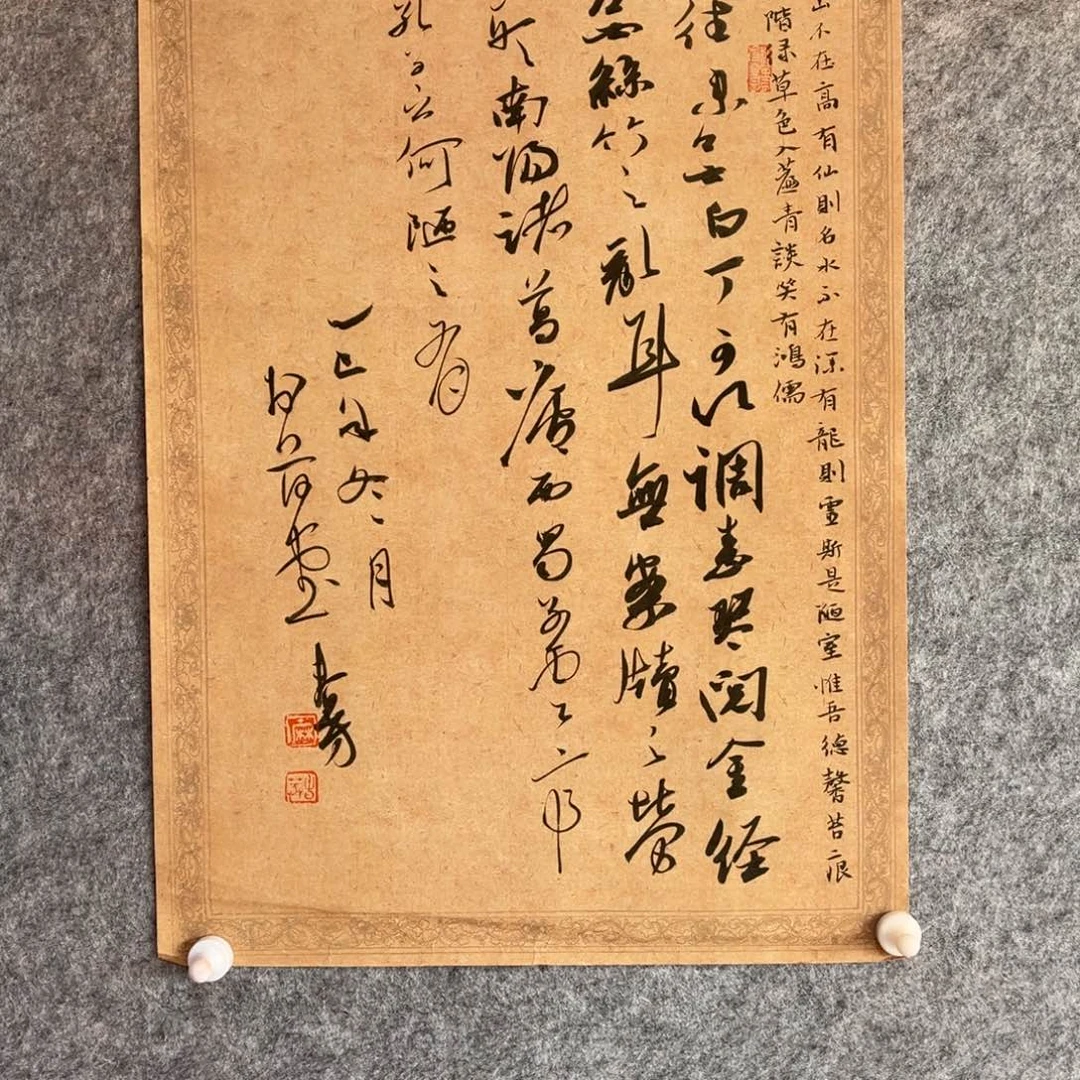 山不在高有仙則名水不在深有龍則靈斯是陋室惟吾德馨苔痕
階緑草色入簾青談笑有鴻儒
往來無白丁可以調素琴閱金經
無絲竹之亂耳無案牘之勞
形南陽諸葛廬西蜀子雲亭
孔子云何陋之有
乙巳年冬月